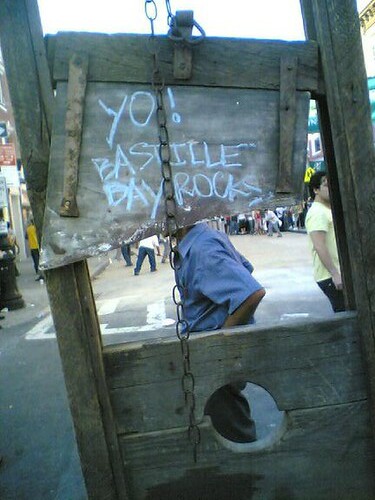 YO!
BASTILLE
BAY ROCKS